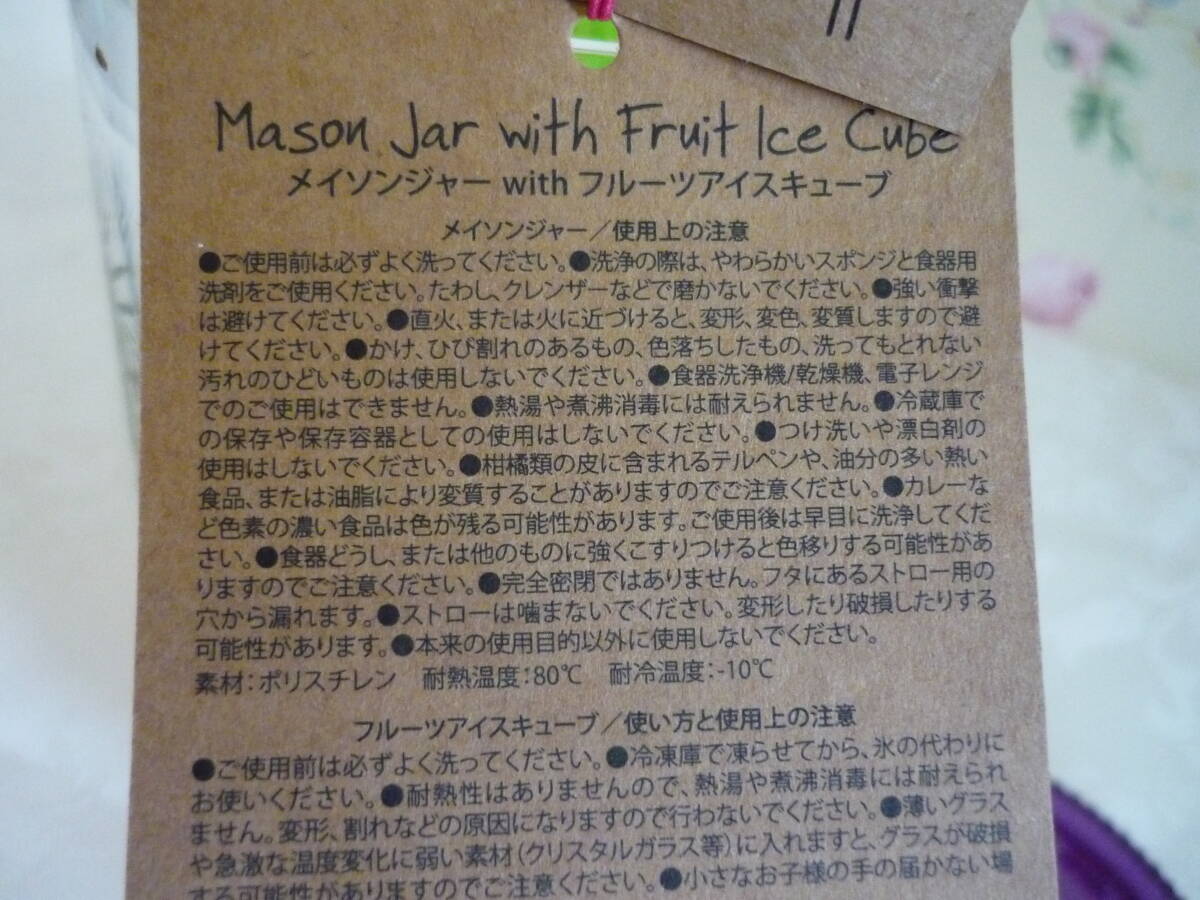 Mason Jar with Fruit Ice Cube
メイソンジャー with フルーツアイスキューブ
メイソンジャー／使用上の注意
●ご使用前は必ずよく洗ってください。●洗浄の際は、やわらかいスポンジと食器用
洗剤をご使用ください。たわし、クレンザーなどで磨かないでください。●強い衝撃
は避けてください。●直火、または火に近づけると、変形、変色、変質しますので避
けてください。●かけ、ひび割れのあるもの、色落ちしたもの、洗ってもとれない
汚れのひどいものは使用しないでください。●食器洗浄機/乾燥機、電子レンジ
でのご使用はできません。●熱湯や煮沸消毒には耐えられません。●冷蔵庫で
の保存や保存容器としての使用はしないでください。●つけ洗いや漂白剤の
使用はしないでください。●柑橘類の皮に含まれるテルペンや、油分の多い熱い
食品、または油脂により変質することがありますのでご注意ください。●カレーな
ど色素の濃い食品は色が残る可能性があります。ご使用後は早目に洗浄してくだ
さい。●食器どうし、または他のものに強くこすりつけると色移りする可能性があ
りますのでご注意ください。●完全密閉ではありません。フタにあるストロー用の
穴から漏れます。●ストローは噛まないでください。変形したり破損したりする
可能性があります。●本来の使用目的以外に使用しないでください。
素材：ポリスチレン　耐熱温度：80℃　耐冷温度：-10℃
フルーツアイスキューブ／使い方と使用上の注意
●ご使用前は必ずよく洗ってください。●冷凍庫で凍らせてから、氷の代わりに
お使いください。●耐熱性はありませんので、熱湯や煮沸消毒には耐えられ
ません。変形、割れなどの原因になりますので行わないでください。●薄いグラス
や急激な温度変化に弱い素材（クリスタルガラス等）に入れますと、グラスが破損
する可能性がありますのでご注意ください。●小さなお子様の手の届かない場